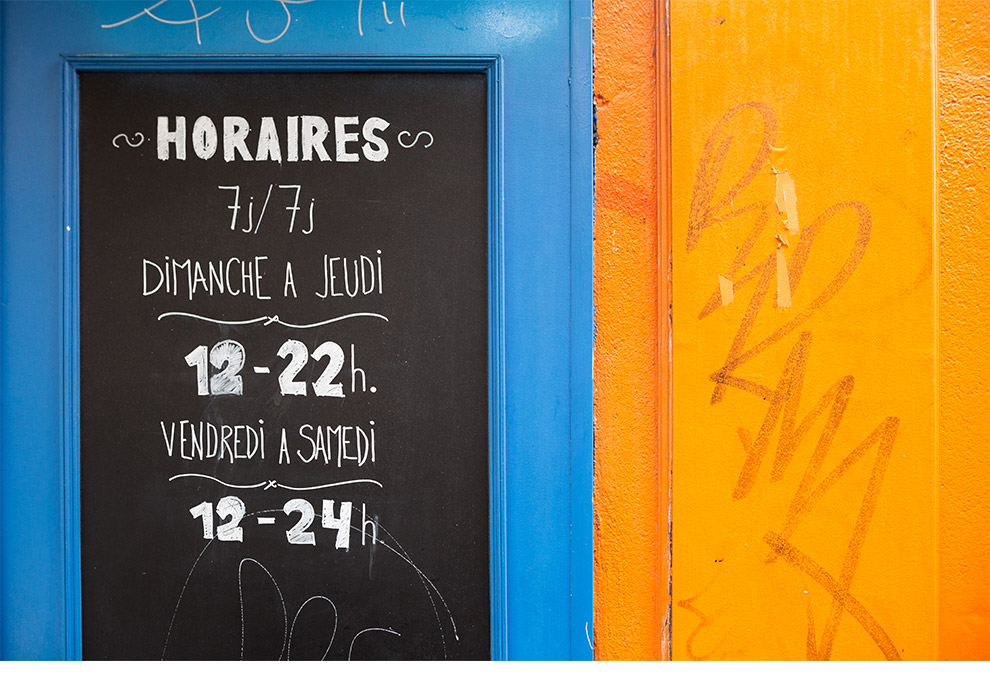 HORAIRES
7j/7j
DIMANCHE A JEUDI
12-22h.
VENDREDI A SAMEDI
12-24h